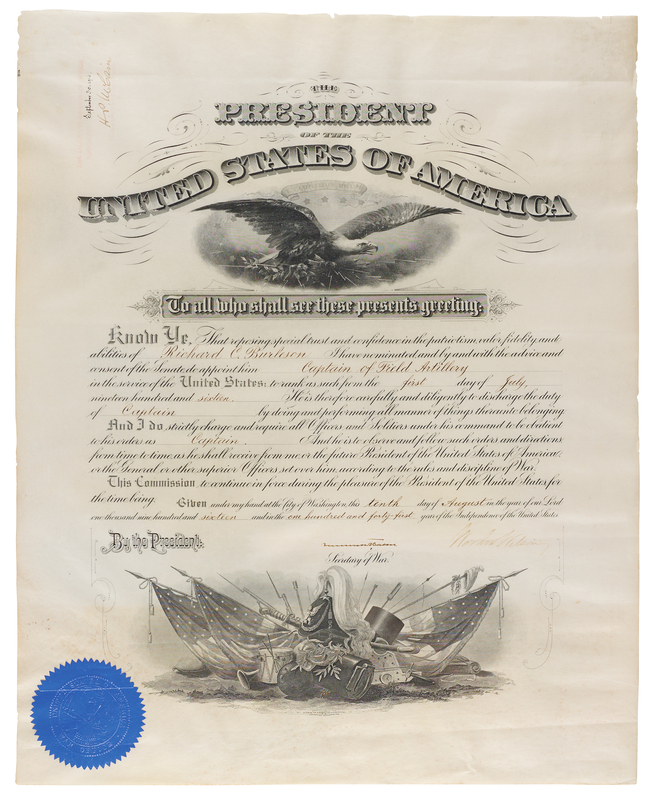 THE
PRESIDENT
OF THE
UNITED STATES OF AMERICA
To all who shall see these presents greeting.
Know Ye, That reposing special trust and confidence in the patriotism, valor, fidelity and
abilities of Richard C. Burleson I have nominated and by and with the advice and
consent of the Senate do appoint him Captain of Field Artillery
in the service of the United States: to rank as such from the first day of July,
nineteen hundred and sixteen. He is therefore carefully and diligently to discharge the duty
of Captain by doing and performing all manner of things thereunto belonging.
And I do strictly charge and require all Officers and Soldiers under his command to be obedient
to his orders as Captain. And he is to observe and follow such orders and directions
from time to time, as he shall receive from me or the future President of the United States of America,
or the General or other superior Officers set over him, according to the rules and discipline of War.
This Commission to continue in force during the pleasure of the President of the United States for
the time being.
Given under my hand at the City of Washington, this tenth day of August in the year of our Lord
one thousand nine hundred and sixteen and in the one hundred and forty-first year of the Independence of the United States.
By the President:
Woodrow Wilson
Secretary of War.